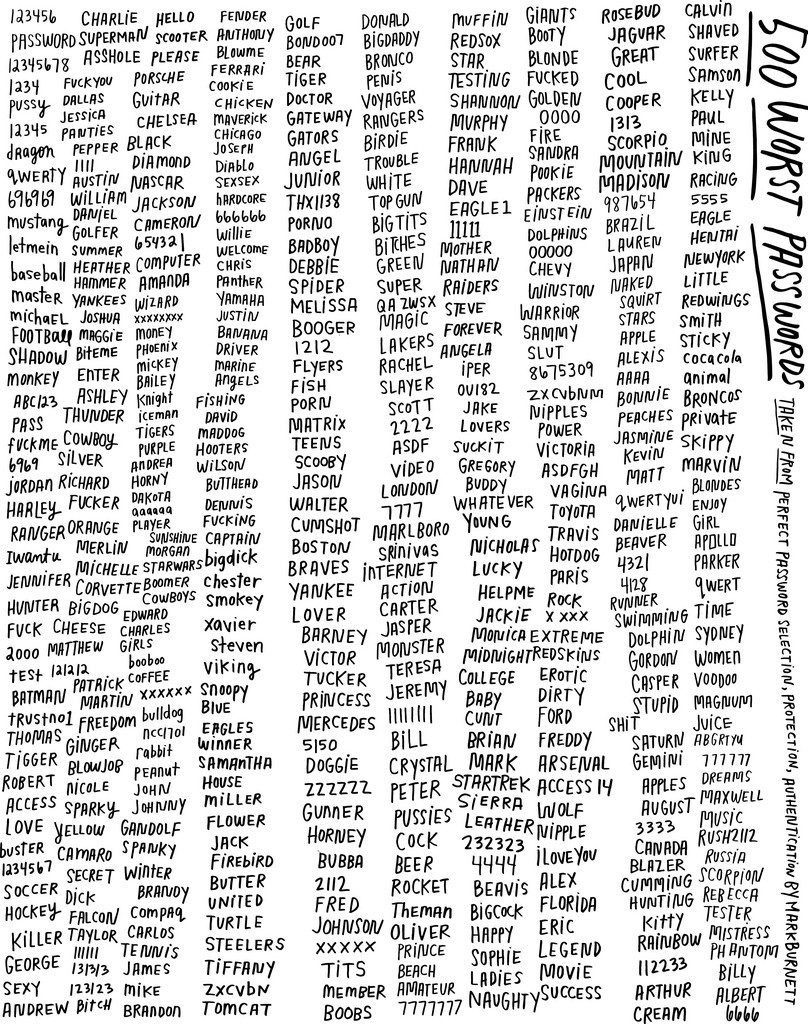 500 WORST PASSWORDS
TAKEN FROM PERFECT PASSWORD SELECTION, PROTECTION, AUTHENTICATION BY MARK BURNETT
123456
PASSWORD
12345678
1234
pussy
12345
dragon
qwerty
696969
mustang
letmein
baseball
master
michael
FOOTball
SHADOW
MONKEY
ABC123
PASS
fuckme
6969
JORDAN
HARLEY
RANGER
Iwantu
JENNIFER
HUNTER
FUCK
2000
test
BATMAN
trustno1
THOMAS
TIGGER
ROBERT
ACCESS
LOVE
buster
1234567
SOCCER
HOCKEY
KILLER
GEORGE
SEXY
ANDREW
CHARLIE
SUPERMAN
ASSHOLE
FUCKYOU
DALLAS
JESSICA
PANTIES
PEPPER
1111
AUSTIN
WILLIAM
DANIEL
GOLFER
SUMMER
HEATHER
HAMMER
YANKEES
JOSHUA
MAGGIE
BiteME
ENTER
ASHLEY
THUNDER
COWBOY
SILVER
RICHARD
FUCKER
ORANGE
MERLIN
MICHELLE
CORVETTE
BIGDOG
CHEESE
MATTHEW
121212
PATRICK
MARTIN
FREEDOM
GINGER
BLOWJOB
nicole
SPARKY
YELLOW
CAMARO
SECRET
DICK
FALCON
TAYLOR
111111
131313
123123
BitcH
HELLO
SCOOTER
PLEASE
PORSCHE
GUitAR
CHELSEA
BLACK
DIAMOND
NASCAR
JACKSON
CAMERON
654321
COMPUTER
AMANDA
WIZARD
xxxxxxxx
MONEY
PHOENIX
mickey
BAILEY
Knight
iceman
TIGERS
PURPLE
ANDREA
HORNY
DAKOTA
aaaaaa
PLAYER
SUNSHINE
MORGAN
STARWARS
BOOMER
COWBOYS
EDWARD
CHARLES
GIRLS
booboo
COFFEE
xxxxxx
bulldog
ncc1701
rabbit
PEANUT
JOHN
JOHNNY
GANDOLF
SPANKY
WINTER
BRANDY
COMPAQ
CARLOS
TENNIS
JAMES
MIKE
BRANDON
FENDER
ANTHONY
BLOWME
FERRARI
COOKIE
CHICKEN
MAVERICK
CHICAGO
JOSEPH
DIABLO
SEXSEX
HARDCORE
666666
Willie
WELCOME
CHRIS
PANTHER
YAMAHA
JUSTIN
BANANA
DRIVER
MARINE
ANGELS
FISHING
DAVID
MADDOG
HOOTERS
WILSON
BUTTHEAD
DENNIS
FUCKING
CAPTAIN
bigdick
chester
SMOKEY
xavier
STEVEN
viking
SNOOPY
BLUE
EAGLES
WINNER
SAMANTHA
HOUSE
MILLER
FLOWER
JACK
FIREBIRD
BUTTER
UNITED
TURTLE
STEELERS
TIFFANY
ZXCVBN
TOMCAT
GOLF
BOND007
BEAR
TIGER
DOCTOR
GATEWAY
GATORS
ANGEL
JUNIOR
THX1138
PORNO
BADBOY
DEBBIE
SPIDER
MELISSA
BOOGER
1212
FLYERS
FISH
PORN
MATRIX
TEENS
SCOOBY
JASON
WALTER
CUMSHOT
BOSTON
BRAVES
YANKEE
LOVER
BARNEY
VICTOR
TUCKER
PRINCESS
MERCEDES
5150
DOGGIE
ZZZZZZ
GUNNER
HORNEY
BUBBA
2112
FRED
JOHNSON
XXXXX
TITS
MEMBER
BOOBS
DONALD
BIGDADDY
BRONCO
PENIS
VOYAGER
RANGERS
BIRDIE
TROUBLE
WHITE
TOPGUN
BIGTITS
BITCHES
GREEN
SUPER
QAZWSX
MAGIC
LAKERS
RACHEL
SLAYER
SCOTT
2222
ASDF
VIDEO
LONDON
7777
MARLBORO
SRINIVAS
INTERNET
ACTION
CARTER
JASPER
MONSTER
TERESA
JEREMY
11111111
BILL
CRYSTAL
PETER
PUSSIES
COCK
BEER
ROCKET
THEMAN
OLIVER
PRINCE
BEACH
AMATEUR
7777777
MUFFIN
REDSOX
STAR
TESTING
SHANNON
MURPHY
FRANK
HANNAH
DAVE
EAGLE1
11111
MOTHER
NATHAN
RAIDERS
STEVE
FOREVER
ANGELA
iPER
OU182
JAKE
LOVERS
SUCKIT
GREGORY
BUDDY
WHATEVER
YOUNG
NICHOLAS
LUCKY
HELPME
JACKIE
MONICA
MIDNIGHT
COLLEGE
BABY
CUNT
BRIAN
MARK
STARTREK
SIERRA
LEATHER
232323
4444
BEAVIS
BIGCOCK
HAPPY
SOPHIE
LADIES
NAUGHTY
GIANTS
BOOTY
BLONDE
FUCKED
GOLDEN
0000
FIRE
SANDRA
POOKIE
PACKERS
EINSTEIN
DOLPHINS
00000
CHEVY
WINSTON
WARRIOR
SAMMY
SLUT
8675309
ZXCVBNM
NIPPLES
POWER
VICTORIA
ASDFGH
VAGINA
TOYOTA
TRAVIS
HOTDOG
PARIS
ROCK
XXXX
EXTREME
REDSKINS
EROTIC
DIRTY
FORD
FREDDY
ARSENAL
ACCESS14
WOLF
NIPPLE
iLOVEYOU
ALEX
FLORIDA
ERIC
LEGEND
MOVIE
SUCCESS
ROSEBUD
JAGUAR
GREAT
COOL
COOPER
1313
SCORPIO
MOUNTAIN
MADISON
987654
BRAZIL
LAUREN
JAPAN
NAKED
SQUIRT
STARS
APPLE
ALEXIS
AAAA
BONNIE
PEACHES
JASMINE
KEVIN
MATT
qWERTYUI
DANIELLE
BEAVER
4321
4128
RUNNER
SWIMMING
DOLPHIN
GORDON
CASPER
STUPID
SHIT
SATURN
GEMINI
APPLES
AUGUST
3333
CANADA
BLAZER
CUMMING
HUNTING
KITTY
RAINBOW
112233
ARTHUR
CREAM
CALVIN
SHAVED
SURFER
SAMSON
KELLY
PAUL
MINE
KING
RACING
5555
EAGLE
HENTAI
NEWYORK
LITTLE
REDWINGS
SMITH
STICKY
cocacola
animal
BRONCOS
PRIVATE
SKIPPY
MARVIN
BLONDES
ENJOY
GIRL
APOLLO
PARKER
qWERT
TIME
SYDNEY
WOMEN
VOODOO
MAGNUM
JUICE
ABGRTYU
777777
DREAMS
MAXWELL
MUSIC
RUSH2112
RUSSIA
SCORPION
REBECCA
TESTER
MISTRESS
PHANTOM
BILLY
ALBERT
6666